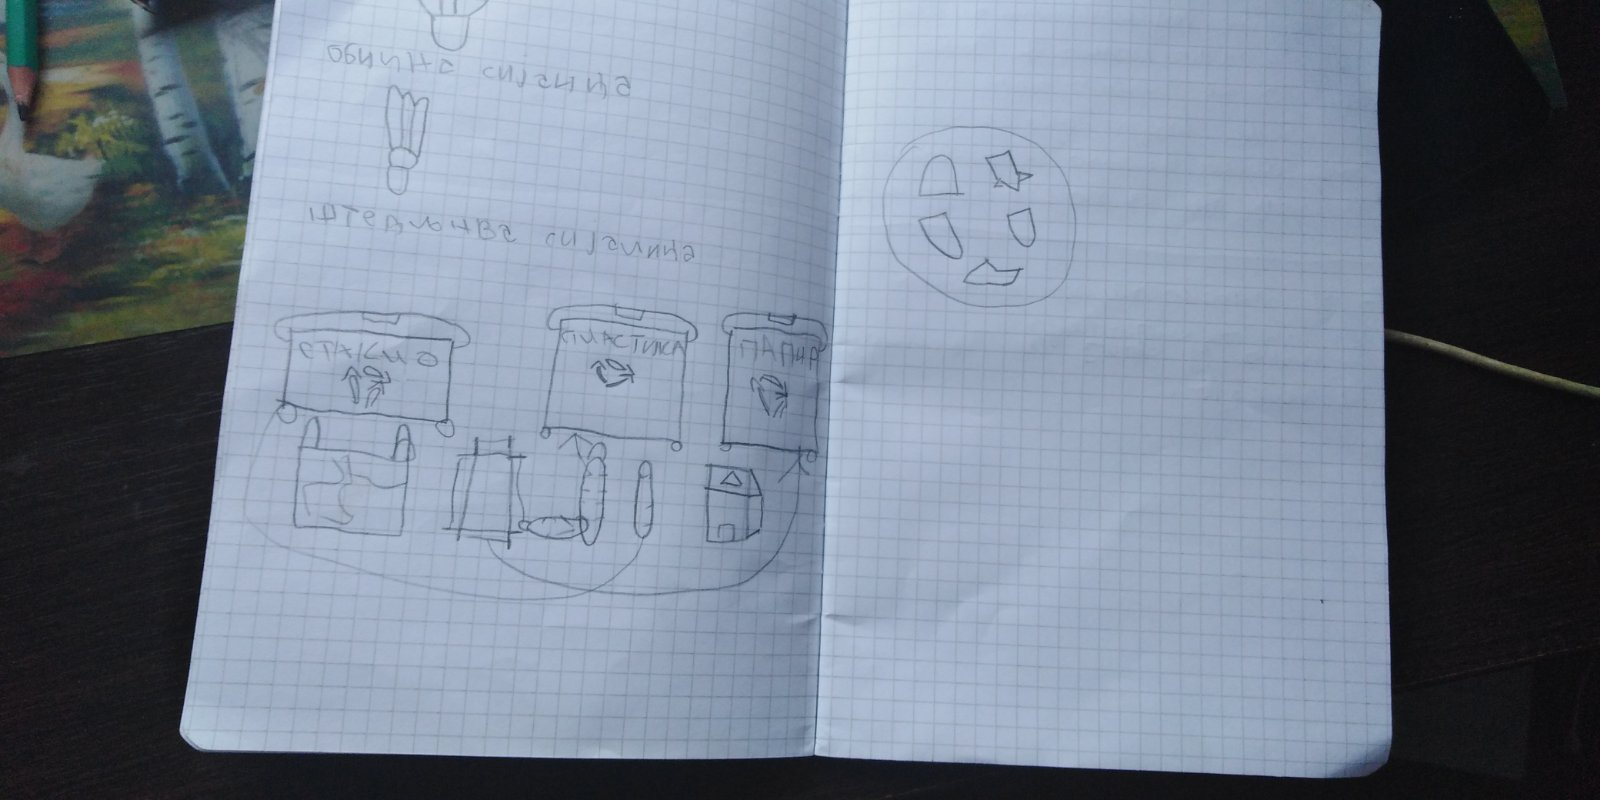 обична сијалица
штедљива сијалица
СТАКЛО ПЛАСТИКА ПАПИР